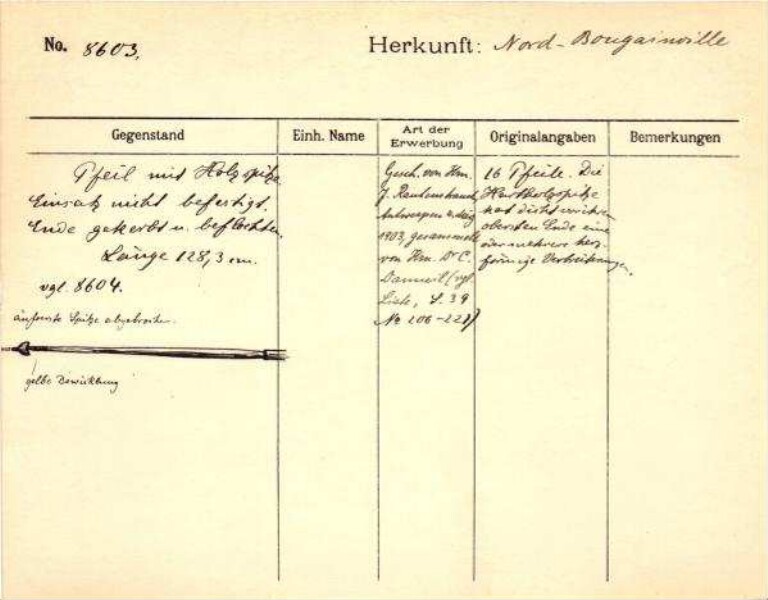 No. 8603.
Herkunft: Nord-Bougainville
Gegenstand
Einh. Name
Art der Erwerbung
Originalangaben
Bemerkungen
Pfeil mit Holzspitze
Einsatz nicht befestigt.
Ende gekerbt u. beflochten.
Länge 128,3 cm.
vgl. 8604.
äußerste Spitze abgebrochen.
gelbe Bewicklung
Gesch. von Hrn.
J. Rautenstrauch,
Antwerpen
1903, gesammelt
von Hrn. Dr C.
Danneil (vgl.
Liste, S. 39
No 206-221)
16 Pfeile. Die
Hartholzspitze
hat dicht
obersten Ende eine
oder mehrere herz-
förmige Verdickungen.